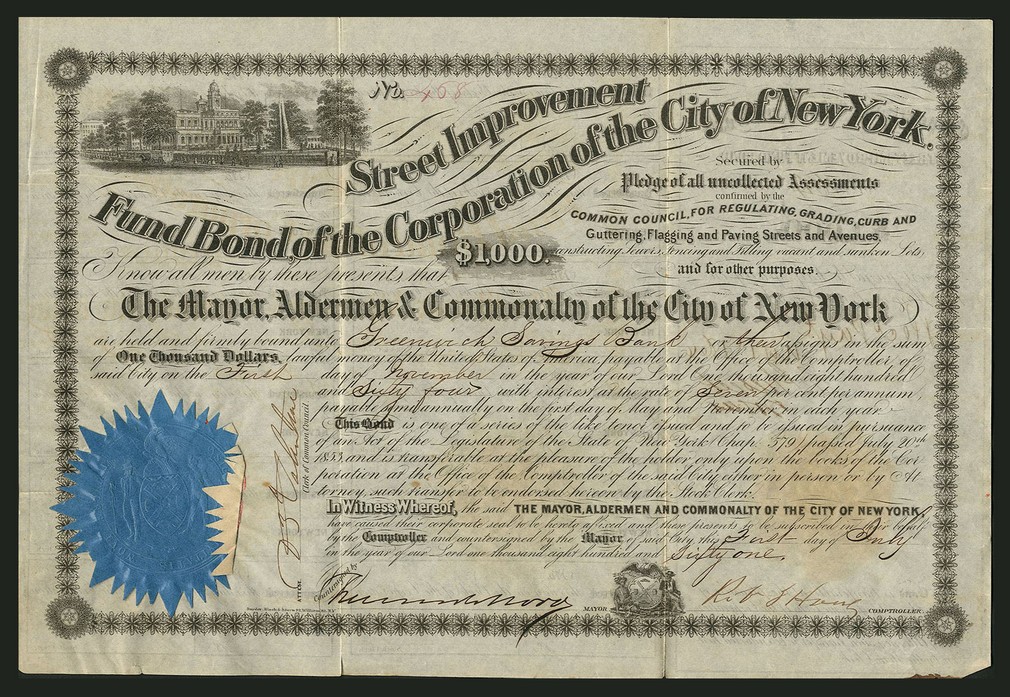 No. 468
Street Improvement
Fund Bond, of the Corporation of the City of New York.
Secured by
Pledge of all uncollected Assessments
confirmed by the
COMMON COUNCIL, FOR REGULATING, GRADING, CURB AND
Guttering, Flagging and Paving Streets and Avenues,
constructing sewers, Fencing and Filling vacant and sunken Lots,
and for other purposes.
$1000.
Know all men by these presents, that
The Mayor, Aldermen & Commonalty of the City of New York
are held and firmly bound unto Greenwich Savings Bank or their assigns in the sum
of One Thousand Dollars, lawful money of the United States of America, payable at the Office of the Comptroller of
said City on the First day of November in the year of our Lord One thousand eight hundred
and Sixty four with interest at the rate of Seven per cent per annum,
payable semi annually on the first day of May and November in each year
This Bond is one of a series of the like tenor, issued and to be issued in pursuance
of an Act of the Legislature of the State of New York Chap. 579 passed July 20th
1853 and is transferable at the pleasure of the holder only upon the books of the Cor
poration at the Office of the Comptroller of the said City either in person or by At
torney, such transfer to be endorsed hereon by the Stock Clerk.
In Witness Whereof, the said THE MAYOR, ALDERMEN AND COMMONALTY OF THE CITY OF NEW YORK,
have caused their corporate seal to be hereby affixed and these presents to be subscribed in their behalf
by the Comptroller and countersigned by the Mayor of said City this First day of July
in the year of our Lord one thousand eight hundred and Sixty one
ATTEST.
Clerk of Common Council
Countersigned by
Fernando Wood
MAYOR
COMPTROLLER